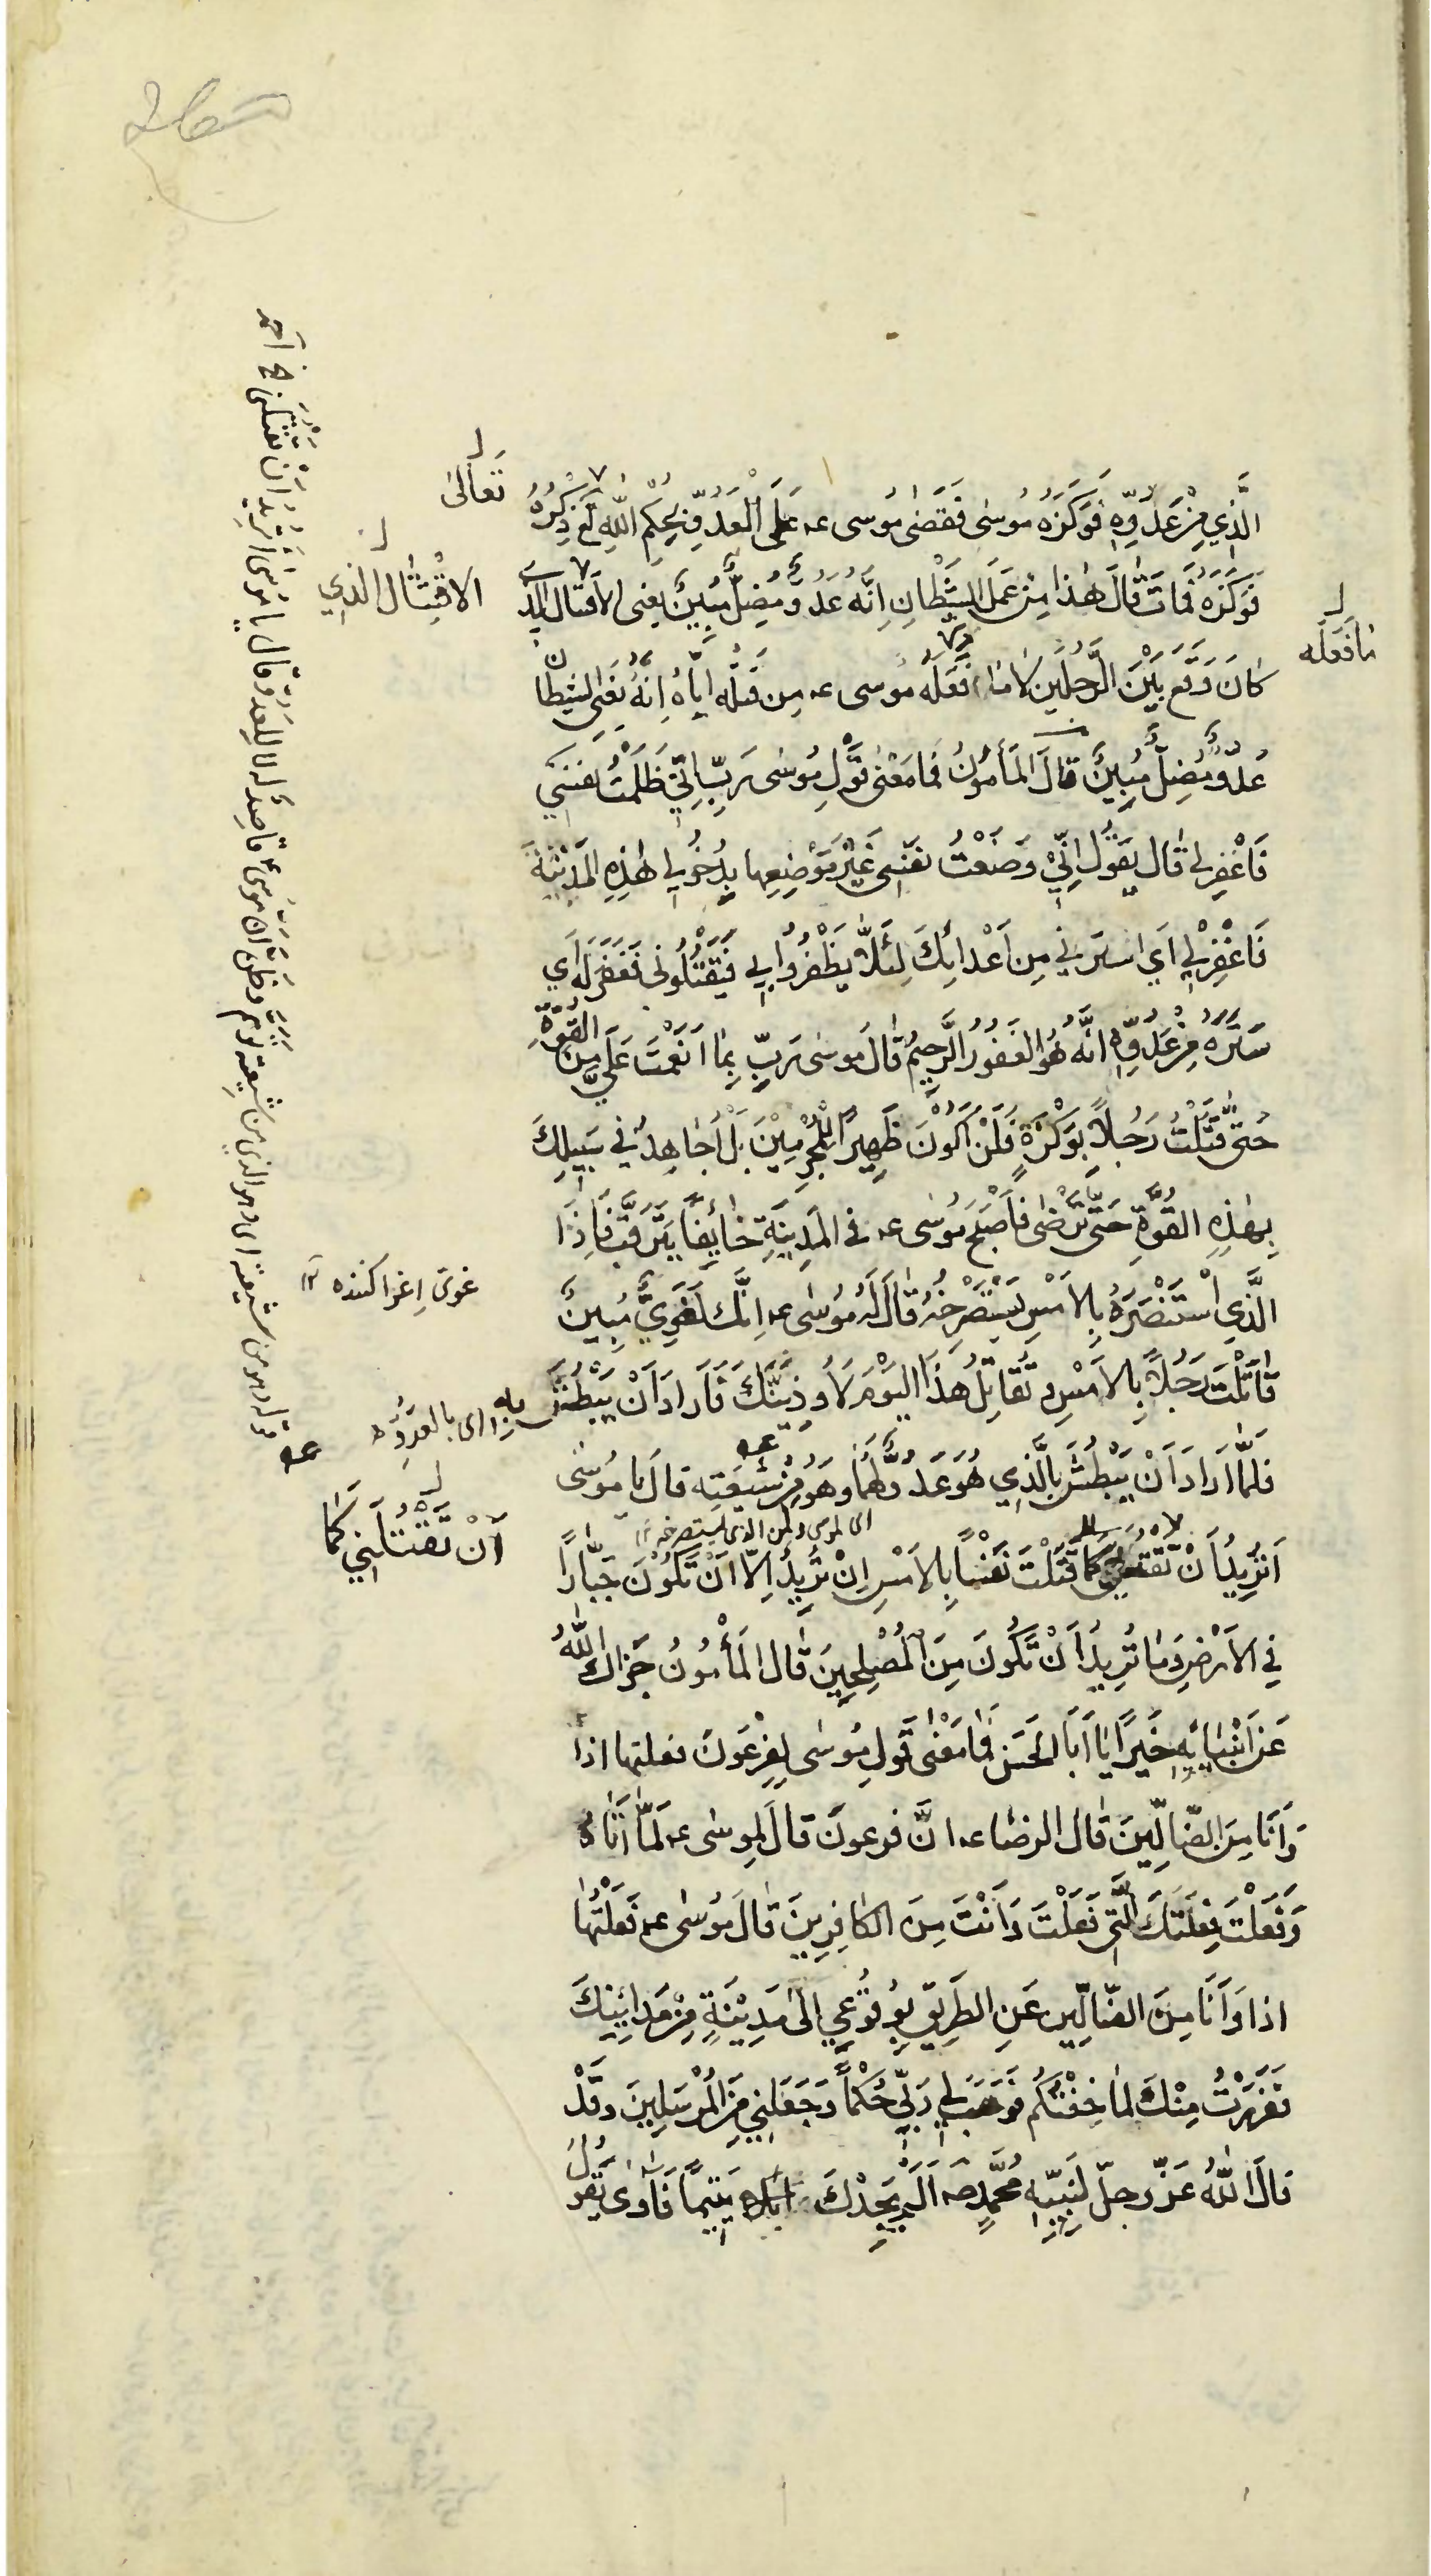 الَّذِي مِنْ عَدُوِّهِ فَوَكَزَهُ مُوسٰى فَقَضٰى مُوسى عہ عَلَى الْعَدُوِّ بِحُكْمِ اللهِ تَعَ ذِكْرُهُ
تَعَالىٰ
فَوَكَزَهُ فَمَاتَ قٰالَ هٰذٰا مِنْ عَمَلِ الشَّيْطٰانِ اِنَّهُ عَدُوٌّ مُضِلٌّ مُبِينٌ يعنى الاقتتال الذي
الاقْتِتٰال الذي
كٰانَ وَقَعَ بَيْنَ الرَّجُلَيْنِ لٰا مٰا فَعَلَهُ مُوسى عہ مِن قَتْلِه اِيّٰاهُ اِنَّهُ يَعْنى الشيطان
مٰا فَعَلَه
عَدُوٌّ مُضِلٌّ مُبِينٌ قالَ المَأمُونُ فَما مَعْنىٰ قَوْلِ مُوسٰى رَبِّ اِنِّي ظَلَمْتُ نَفْسي
فَاغْفِر لي قٰال يَقُولُ اِنِّيْ وَضَعْتُ نَفْسِي غَيْرَ مَوْضِعِها بِدُخُولي هٰذِهِ المَدِيْنَةَ
فَاغْفِرْ لي اَي اسْتُرنِي مِن اَعْدائِكَ لِئَلّاٰ يَظْفَرُوا بي فَيَقْتُلُونى فَغَفَرَ لَهُ اَي
سَتَرَهُ مِنْ عَدُوِّهِ انَّهُ هُوَ الغَفُورُ الرَّحِيمُ قٰالَ مُوسٰى رَبِّ بِمٰا اَنْعَمْتَ عَلَيَّ مِنَ القُوَّةِ
حَتّى قَتَلْتُ رَجُلاً بِوَكْزَةٍ فَلَنْ اَكُونَ ظَهِيراً لِلْمُجْرِمِيْنَ بَلْ اُجٰاهِدُ في سَبِيلِكَ
بِهٰذِهِ القُوَّةِ حَتّى تَرْضٰى فَاَصْبَحَ مُوسٰى عہ في المَدِينَةِ خٰائِفًا يَتَرَقَّبُ فَاِذَا
الَّذِي اسْتَنْصَرَهُ بِالاَمْسِ يَسْتَصْرِخُهُ قٰالَ لَهُ مُوسٰى عہ اِنَّكَ لَغَوِيٌّ مُبِينٌ
غوىّ اِغرا كننده
قٰاتَلْتَ رَجُلاً بِالاَمْسِ وَ تُقٰاتِلُ هٰذَا اليَوْمَ لَاُوذِيَنَّكَ فَاَرادَ اَنْ يَبْطِشَ بِهِ
اى بالعَدُوِّ
فلمّٰا اَرادَ اَنْ يَبْطِشَ بِالَّذِي هُوَ عَدُوٌّ لَهُمٰا وَ هُوَ مِنْ شيعَتِه قالَ يٰا مُوسٰى
اَتُرِيدُ اَنْ تَقْتُلَنِي كَمٰا قَتَلْتَ نَفْسًا بِالاَمْسِ اِنْ تُرِيدُ اِلّٰا اَنْ تَكُونَ جَبّٰارًا
اَنْ تَقْتُلَنِي كَمٰا
فِي الاَرْضِ وَمٰا تُرِيدُ اَنْ تَكُونَ مِنَ المُصْلِحِينَ قٰالَ المَأمُونُ جَزٰاكَ اللهُ
عَن اَنْبِيٰائِهِ خَيْرًا يٰا اَبَا الحَسَنِ فَمٰا مَعْنٰى قَولِ مُوسٰى لِفِرْعَوْنَ فعلتها اذًا
وَاَنَا مِنَ الضّٰالِّينَ قٰال الرضٰا عہ انَّ فرعونَ قالَ لِموسٰى عہ لَمّٰا اَتٰاهُ
وَفَعَلْتَ فِعْلَتَكَ الَّتي فَعَلْتَ وَاَنْتَ مِنَ الكٰافِرِينَ قٰالَ مُوسٰى عہ فَعَلْتُهٰا
اذا وَاَنَا مِنَ الضّٰالِّين عَنِ الطَرِيقِ بِوُقُوعِي اِلىٰ مَدِيْنَةٍ مِنْ مَدائِنِكَ
فَفَرَرْتُ مِنْكَ لَمٰا خِفْتُكُم فَوَهَبَ لِي رَبِّي حُكْمًا وَجَعَلَنِي مِنَ المُرْسَلِينَ وَقَدْ
قٰالَ اللهُ عَزَّ وجلّ لِنَبِيِّهِ مُحَمَّدٍ صہ اَلَمْ يَجِدْكَ يَتيمًا فَاٰوٰى يَقُولُ